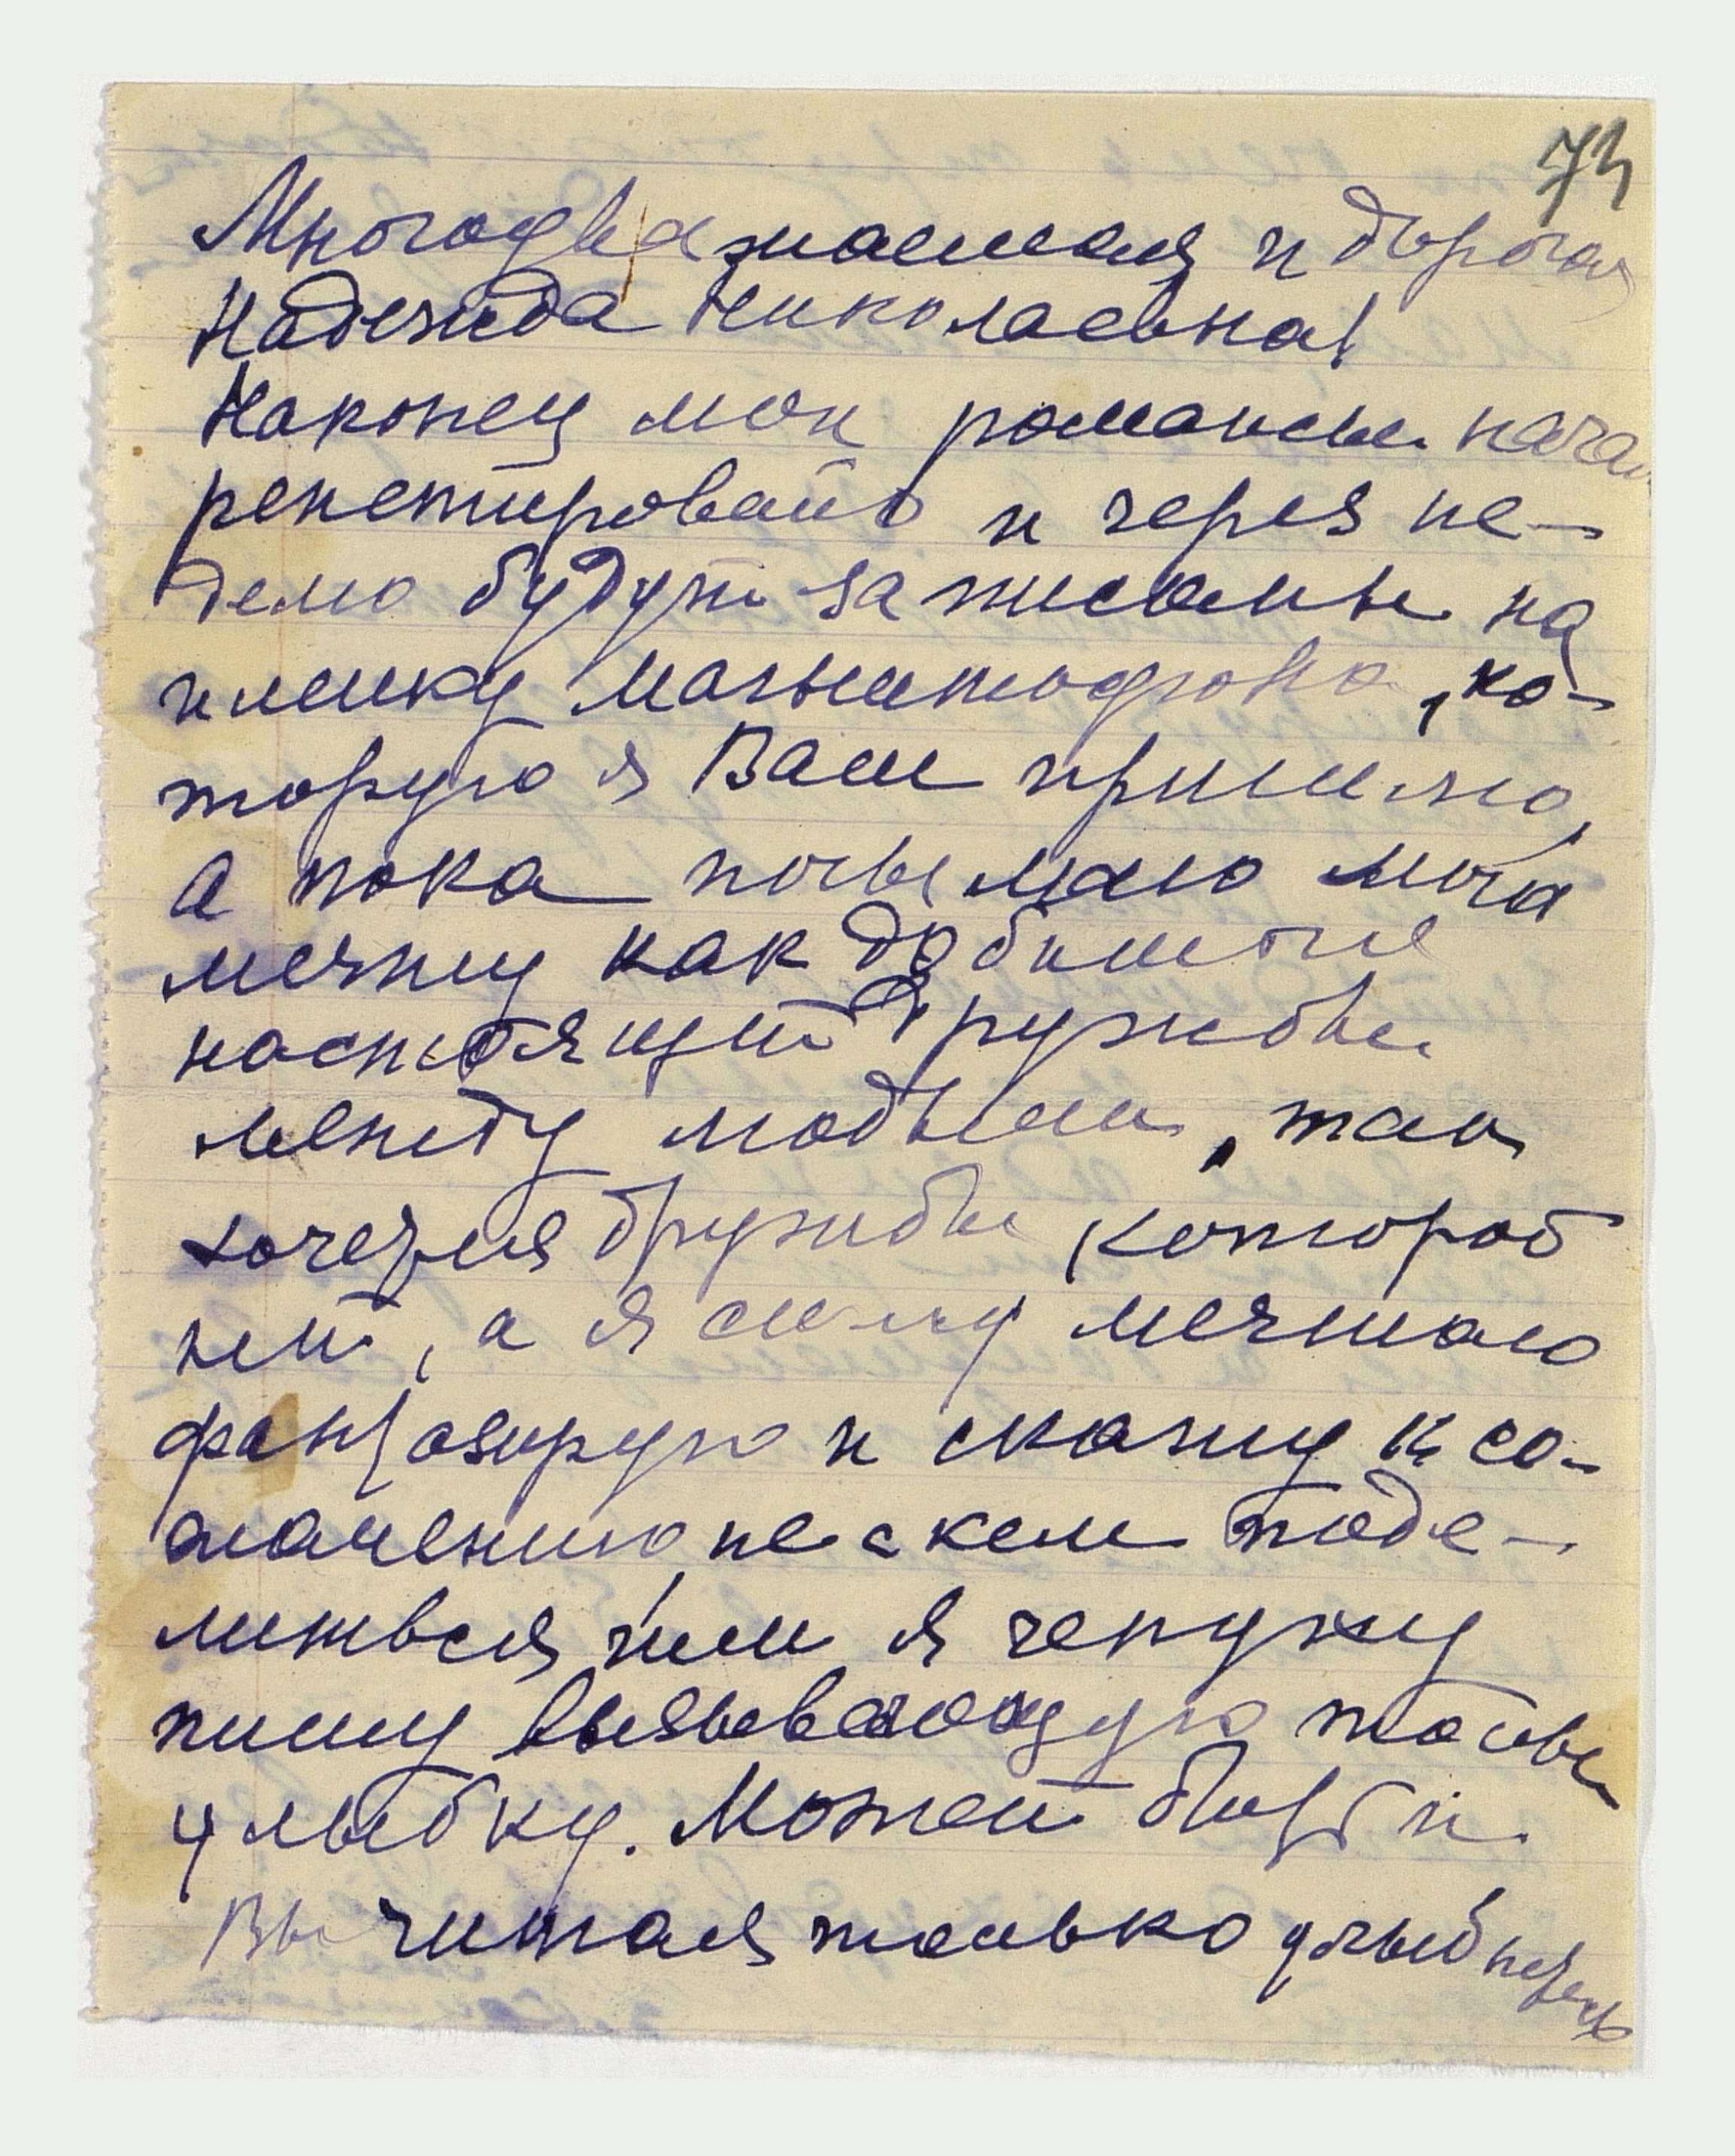 73
Многоуважаемая и дорогая
Надежда Николаевна!
Наконец мои романсы начали
репетировать и через не-
делю будут записаны на
пленку магнитофона, ко-
торую я Вам пришлю,
а пока посылаю мою
мечту как добиться
настоящей дружбы
между людьми, так
хочется дружбы которой
нет, а я сижу мечтаю
фантазирую и скажу к со-
жалению не с кем поде-
литься или я чепуху
пишу вызывающую только
улыбку. Может быть и
Вы читая только улыбнетесь